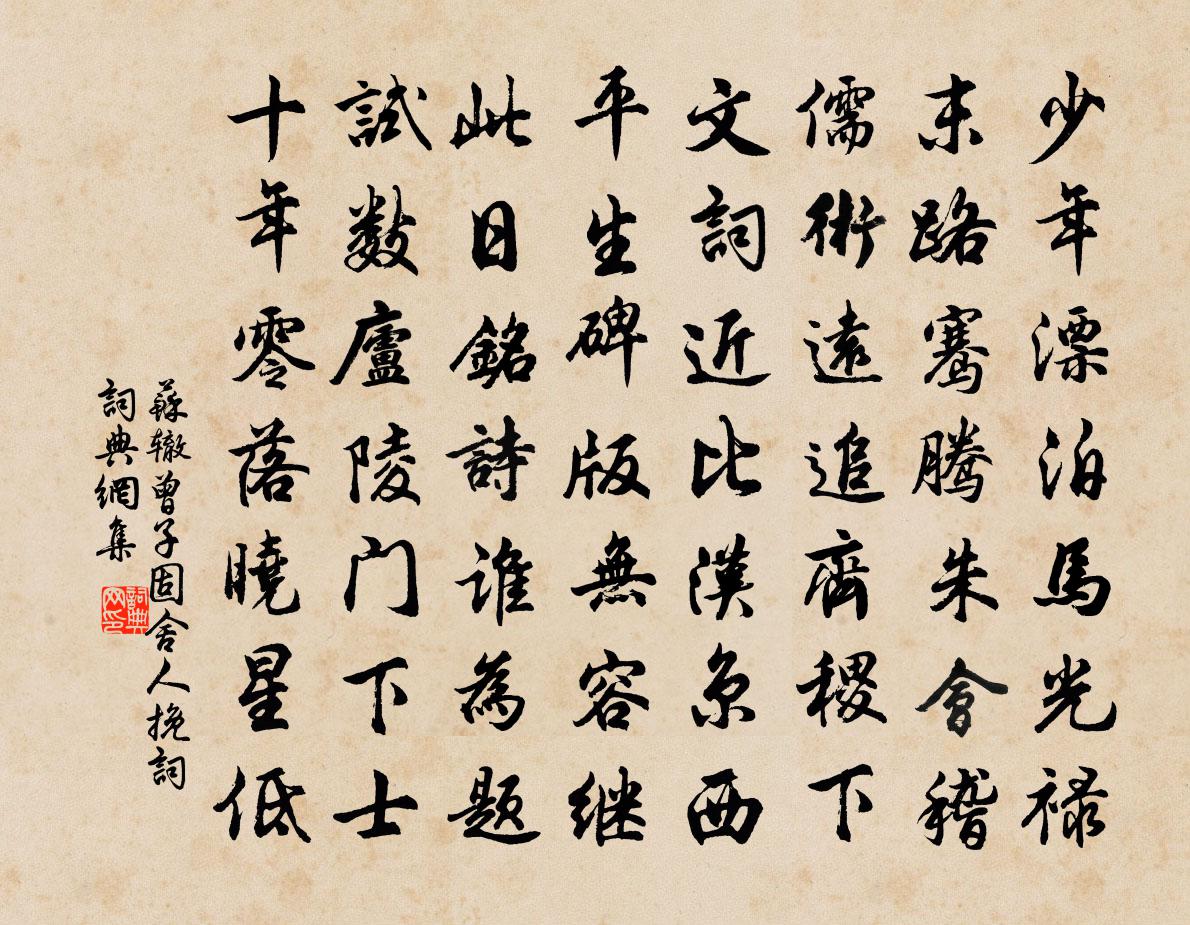 少年漂泊馬光祿
末路騫騰朱會稽
儒術遠追齊稷下
文詞近比漢京西
平生碑版無容继
此日銘詩誰為题
試數廬陵门下士
十年零落曉星低
蘇辙曾子固舍人挽詞
詞典網集
詞典网印